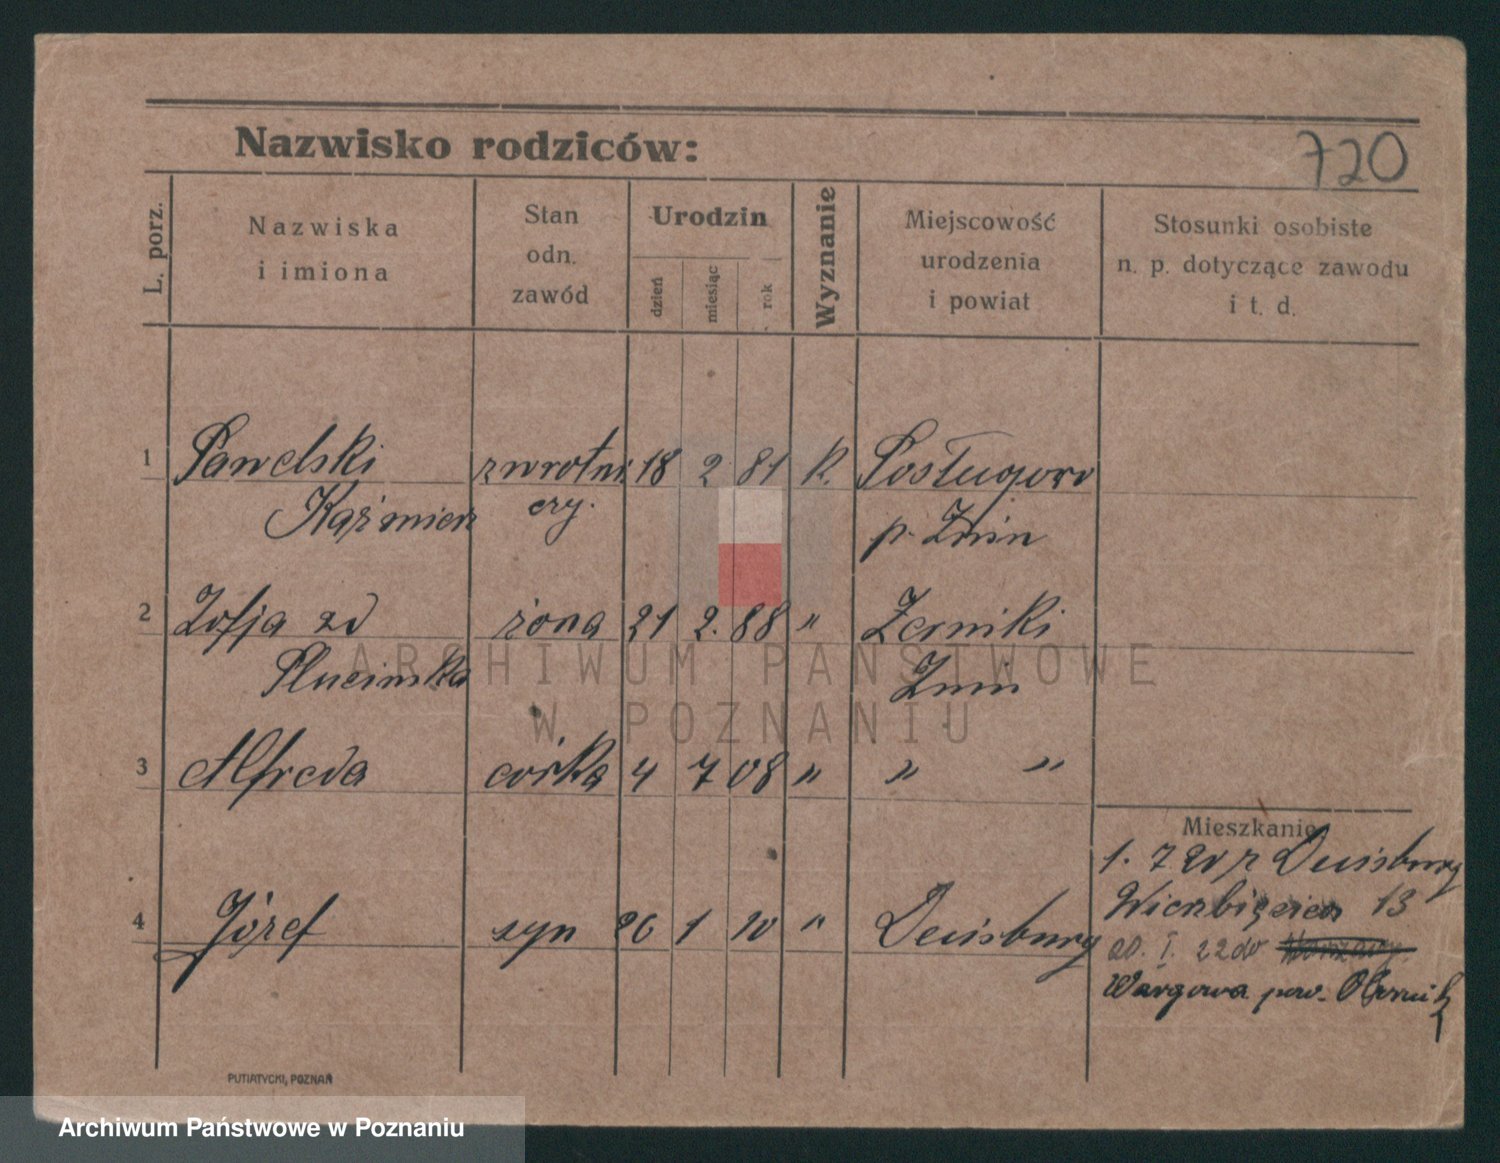 720
Nazwisko rodziców:
L. porz.
Nazwiska
i imiona
Stan
odn.
zawód
Urodzin
dzień
miesiąc
rok
Wyznanie
Miejscowość
urodzenia
i powiat
Stosunki osobiste
n. p. dotyczące zawodu
i t. d.
1 Pawelski zwrotni 18 2 81 K.
Kaźmierz czy. p. Żnin
2 Zofja zd żona 21 2. 88 " Żerniki
Plucinska Żnin
3 Alfreda córka 4 7 08 " " "
Mieszkanie
1. 7. 20 z Duisburg
4 Józef syn 26 1 10 " Duisburg
Wierzbięcice 13
20. I. 22 do
Wargowa pow. Oborniki
PUTIATYCKI, POZNAŃ
ARCHIWUM PAŃSTWOWE
W POZNANIU
Archiwum Państwowe w Poznaniu